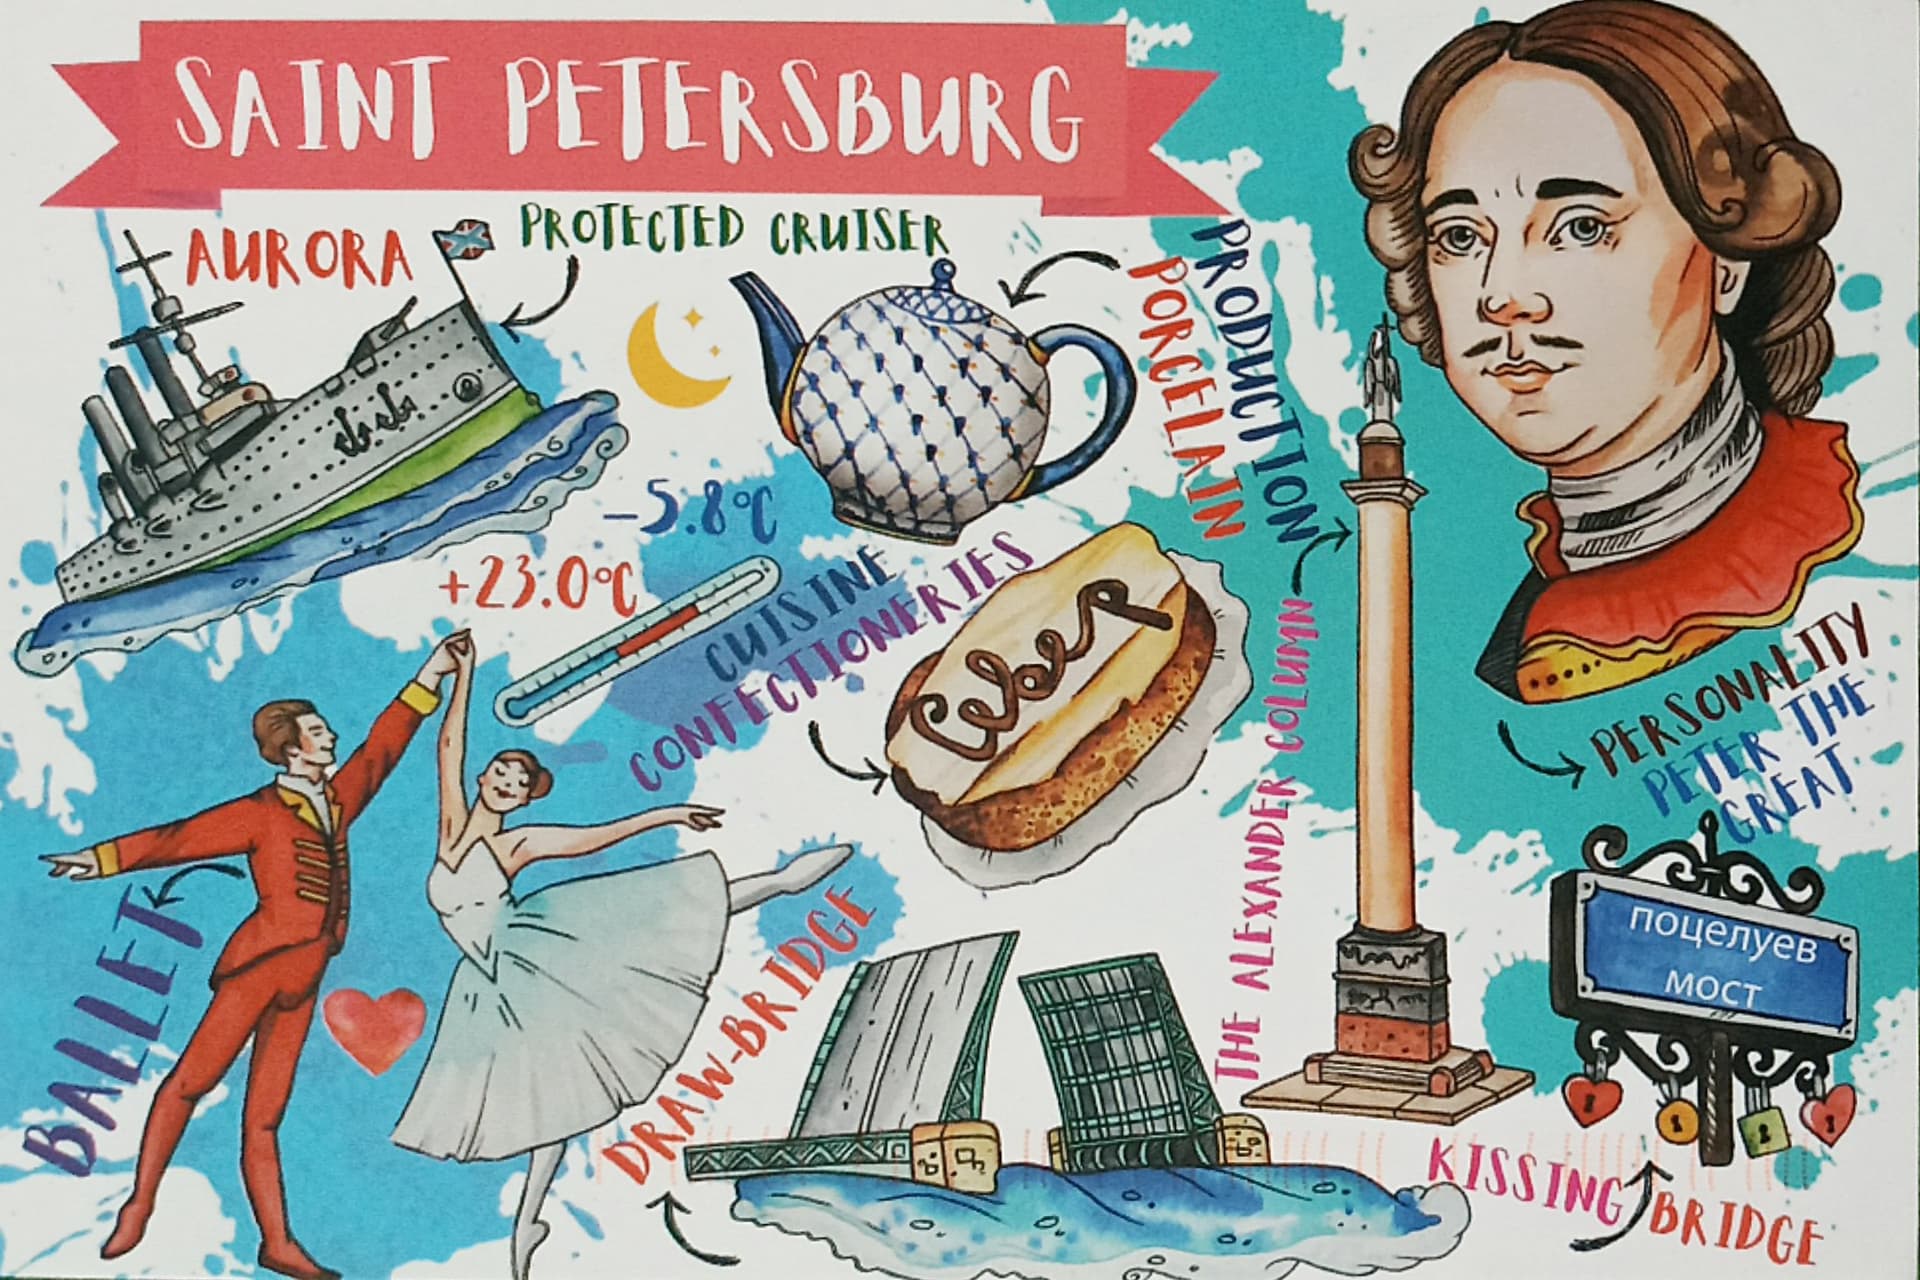 SAINT PETERSBURG
AURORA
PROTECTED CRUISER
PRODUCTION
PORCELAIN
-5.8°C
+23.0°C
CUISINE
CONFECTIONERIES
Север
THE ALEXANDER COLUMN
PERSONALITY
PETER THE
GREAT
BALLET
DRAW-BRIDGE
поцелуев
мост
KISSING
BRIDGE